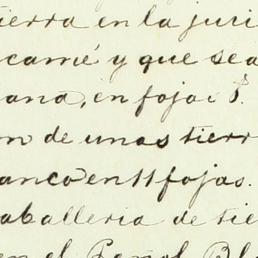 tierra en la juri
came y que sea
ana, en fojas 8.
on de unas tierr
anco en 11 fojas.
aballeria de tie
en el Peñol Bla